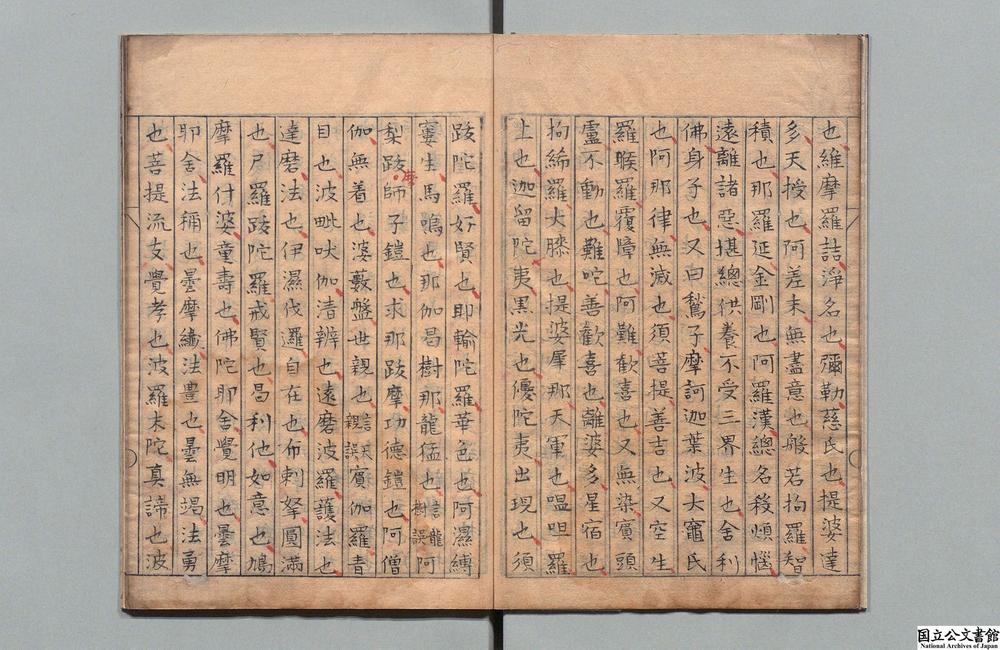 也維摩羅詰淨名也彌勒慈氏也提婆達
多天授也阿差末無盡意也般若拘羅智
積也那羅延金剛也阿羅漢總名殺煩惱
遠離諸惡堪總供養不受三界生也舍利
佛身子也又曰鶖子摩訶迦葉波大龜氏
也阿那律無滅也須菩提善吉也又空生
羅睺羅覆障也阿難歡喜也又無染賓頭
盧不動也難咜善歡喜也離婆多星宿也
拘絺羅大膝也提婆犀那天軍也嗢呾羅
上也迦留陀夷黒光也優陀夷出現也須
跋陀羅好賢也即輸陀羅華色也阿濕縛
寠生馬鳴也那伽曷樹那龍猛也言龍樹誤阿
梨跋摩師子鎧也求那跋摩功德鎧也阿僧
伽無着也婆藪盤世親也言天親誤賓伽羅青
目也波毗吠伽清辨也達磨波羅護法也
達磨法也伊濕伐邏自在也布剌拏圓滿
也尸羅跋陀羅戒賢也曷利他如意也鳩
摩羅什婆童壽也佛陀耶舍覺明也曇摩
耶舍法稱也曇摩繡法豊也曇無竭法勇
也菩提流支覺孝也波羅末陀真諦也波
国立公文書館
National Archives of Japan